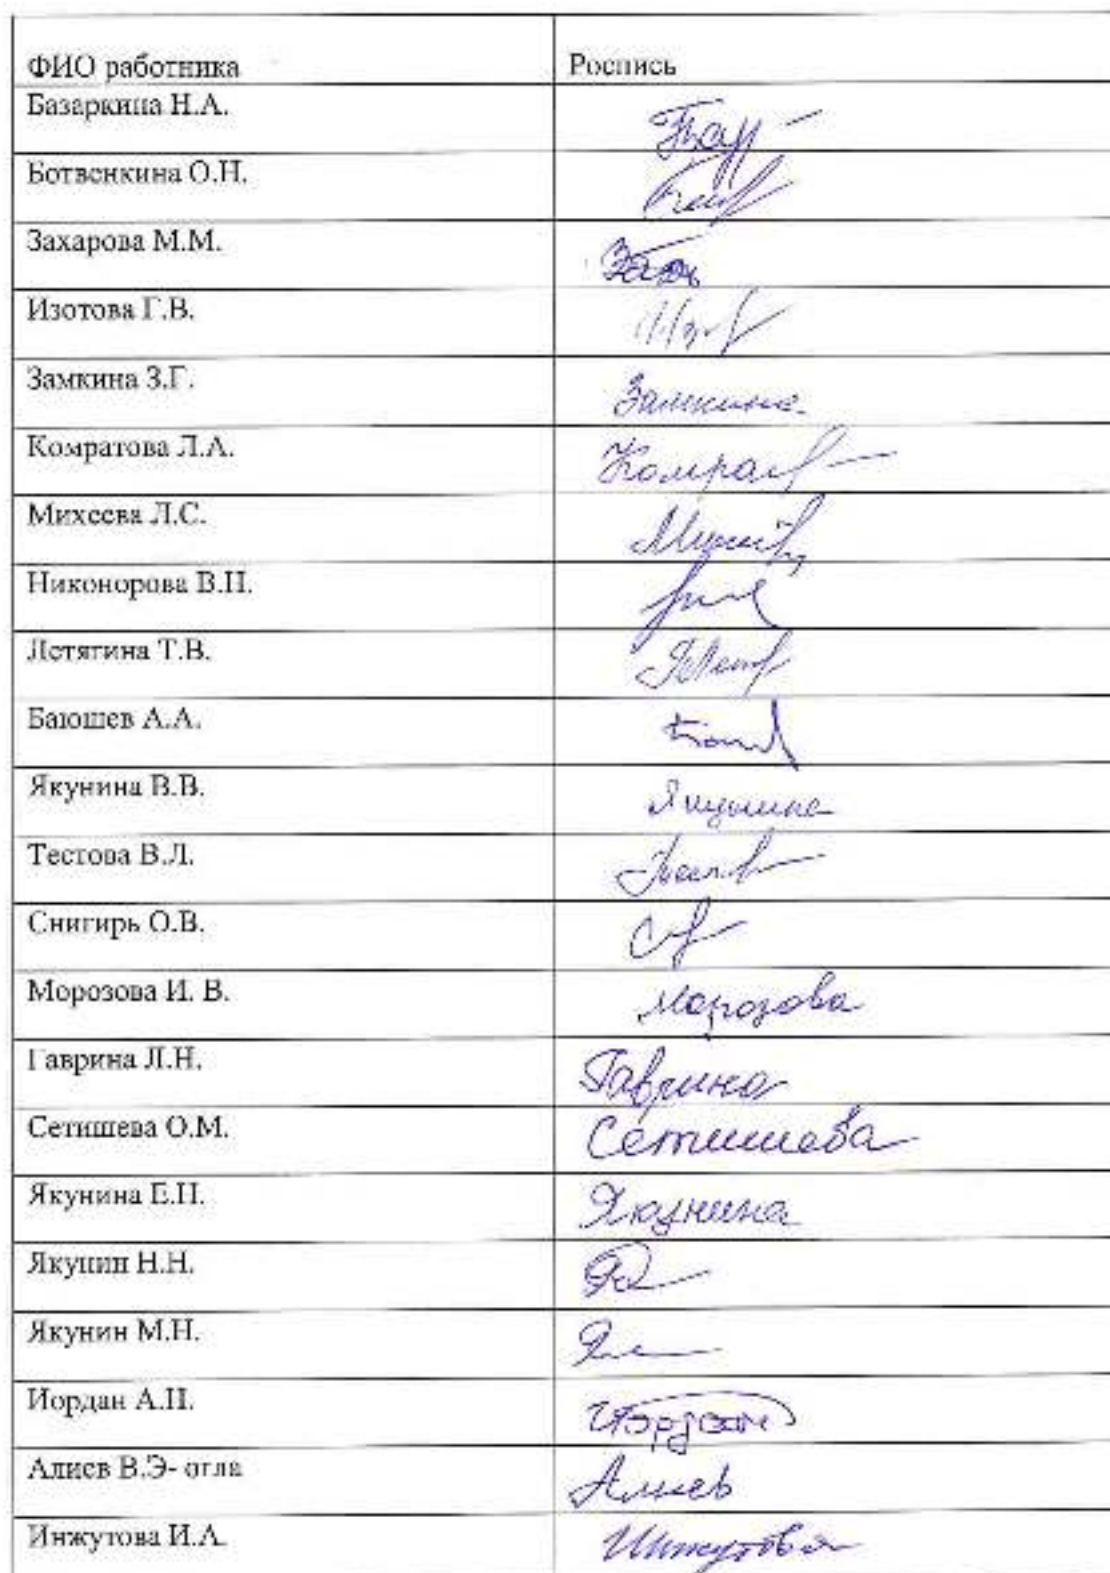 ФИО работника Роспись
Базаркина Н.А.
Ботвенкина О.Н.
Захарова М.М.
Изотова Г.В.
Замкина З.Г. Замкина
Комратова Л.А.
Михеева Л.С.
Никонорова В.Н.
Летягина Т.В.
Баюшев А.А.
Якунина В.В. Якунина
Тестова В.Л.
Снигирь О.В.
Морозова И. В. Морозова
Гаврина Л.Н. Гаврина
Сетишева О.М. Сетишева
Якунина Е.Н. Якунина
Якунин Н.Н.
Якунин М.Н.
Иордан А.Н. Иордан
Алиев В.Э- огла Алиев
Инжутова И.А. Инжутова